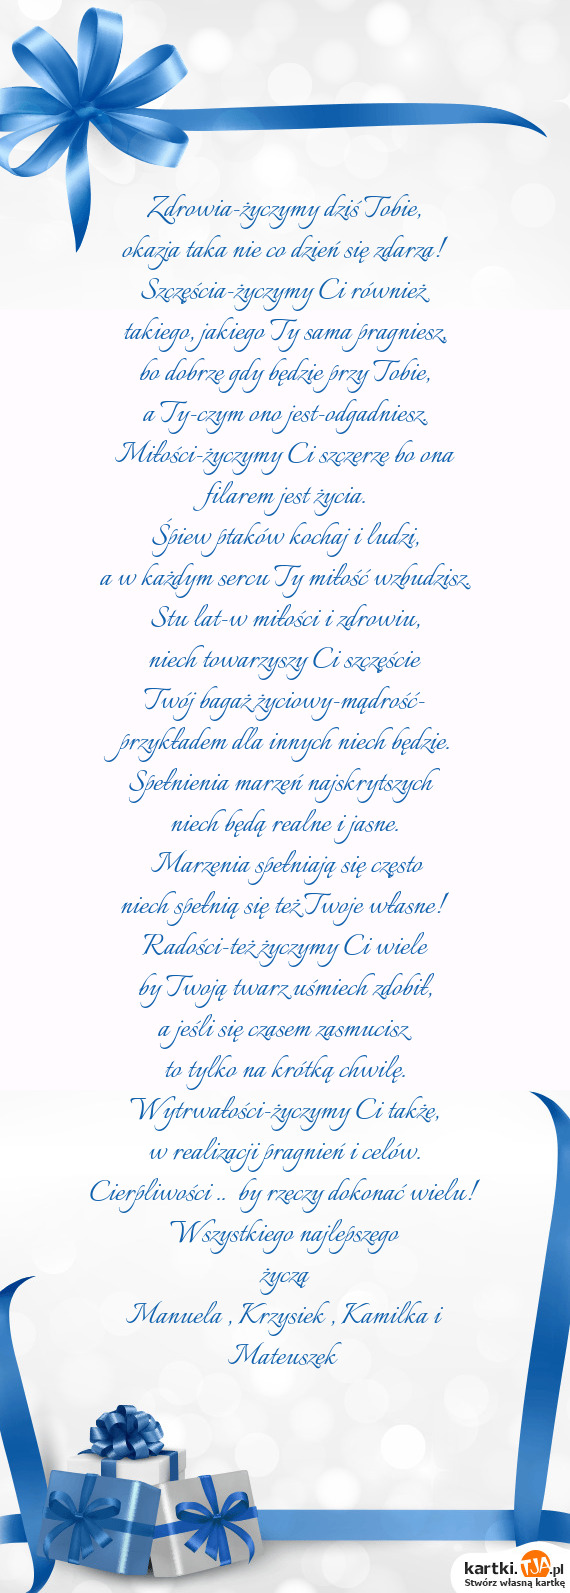 Zdrowia-życzymy dziś Tobie,
okazja taka nie co dzień się zdarza!
Szczęścia-życzymy Ci również
takiego, jakiego Ty sama pragniesz,
bo dobrze gdy będzie przy Tobie,
a Ty-czym ono jest-odgadniesz.
Miłości-życzymy Ci szczerze bo ona
filarem jest życia.
Śpiew ptaków kochaj i ludzi,
a w każdym sercu Ty miłość wzbudzisz.
Stu lat-w miłości i zdrowiu,
niech towarzyszy Ci szczęście
Twój bagaż życiowy-mądrość-
przykładem dla innych niech będzie.
Spełnienia marzeń najskrytszych
niech będą realne i jasne.
Marzenia spełniają się często
niech spełnią się też Twoje własne!
Radości-też życzymy Ci wiele
by Twoją twarz uśmiech zdobił,
a jeśli się czasem zasmucisz
to tylko na krótką chwilę.
Wytrwałości-życzymy Ci także,
w realizacji pragnień i celów.
Cierpliwości .. by rzeczy dokonać wielu!
Wszystkiego najlepszego
życzą
Manuela , Krzysiek , Kamilka i
Mateuszek
kartki.TJA.pl
Stwórz własną kartkę